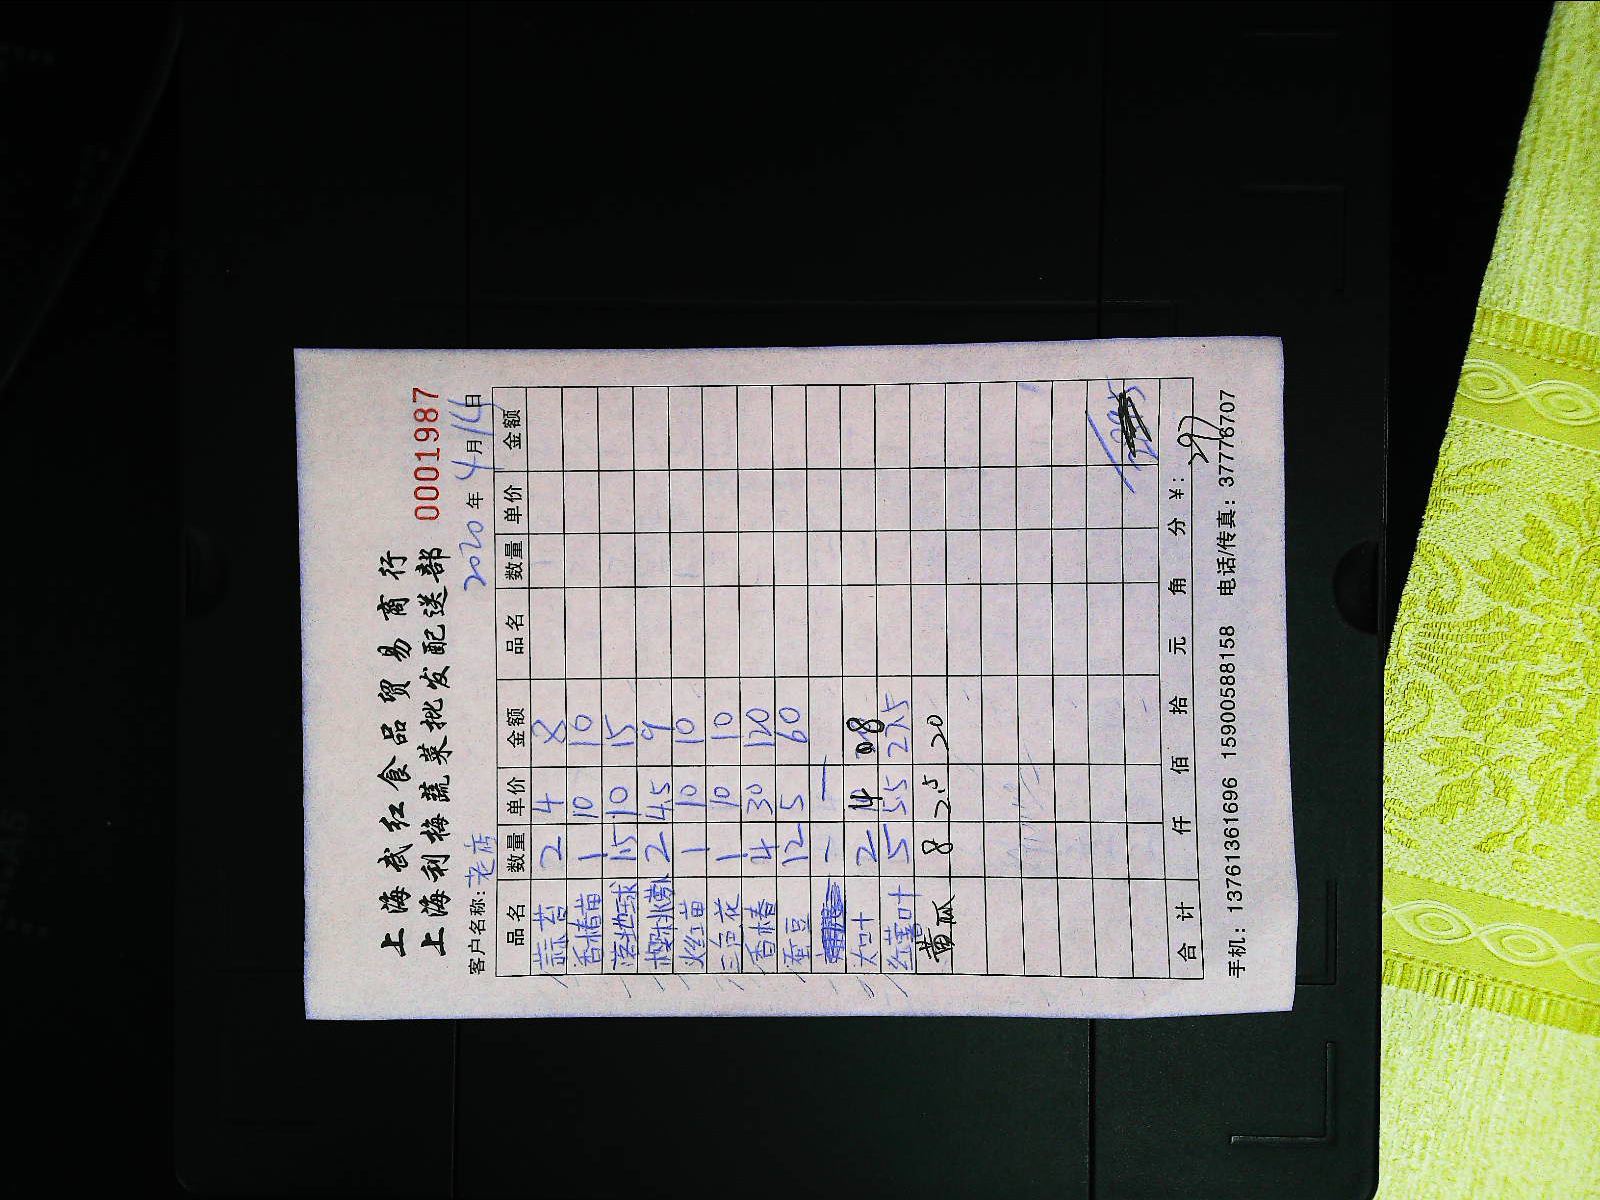 上海武红食品贸易商行
上海利梅蔬菜批发配送部
0001987
客户名称: 老店 2020年4月14日
品名 数量 单价 金额 品名 数量 单价 金额
蒜苔 2 4 8
香椿苗 1 10 10
落地球 1.5 10 15
樱桃萝卜 2 4.5 9
火红苗 1 10 10
三色花 1 10 10
香椿 4 30 120
蚕豆 12 5 60
大叶 2
红薯叶 5 5.5 27.5
黄瓜 8 2.5 20
合计 仟 佰 拾 元 角 分 ¥: 297
手机: 13761361696 15900588158 电话/传真: 37776707